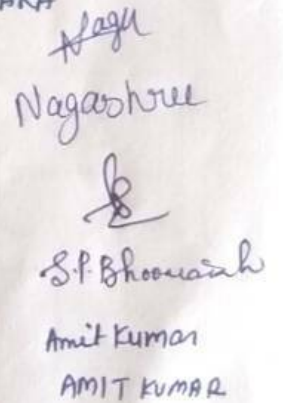 Nagu
Nagashree
S.P. Bhoomaiah
Amit Kumar
AMIT KUMAR